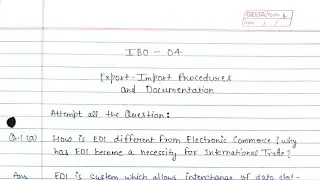 DELTA
IBO - 04
Export-Import Procedures
and Documentation
Attempt all the Question:
Q.1(a) How is EDI different from Electronic Commerce? why
has EDI become a necessity for International Trade?
Ans. EDI is system which allows interchange of data elet-